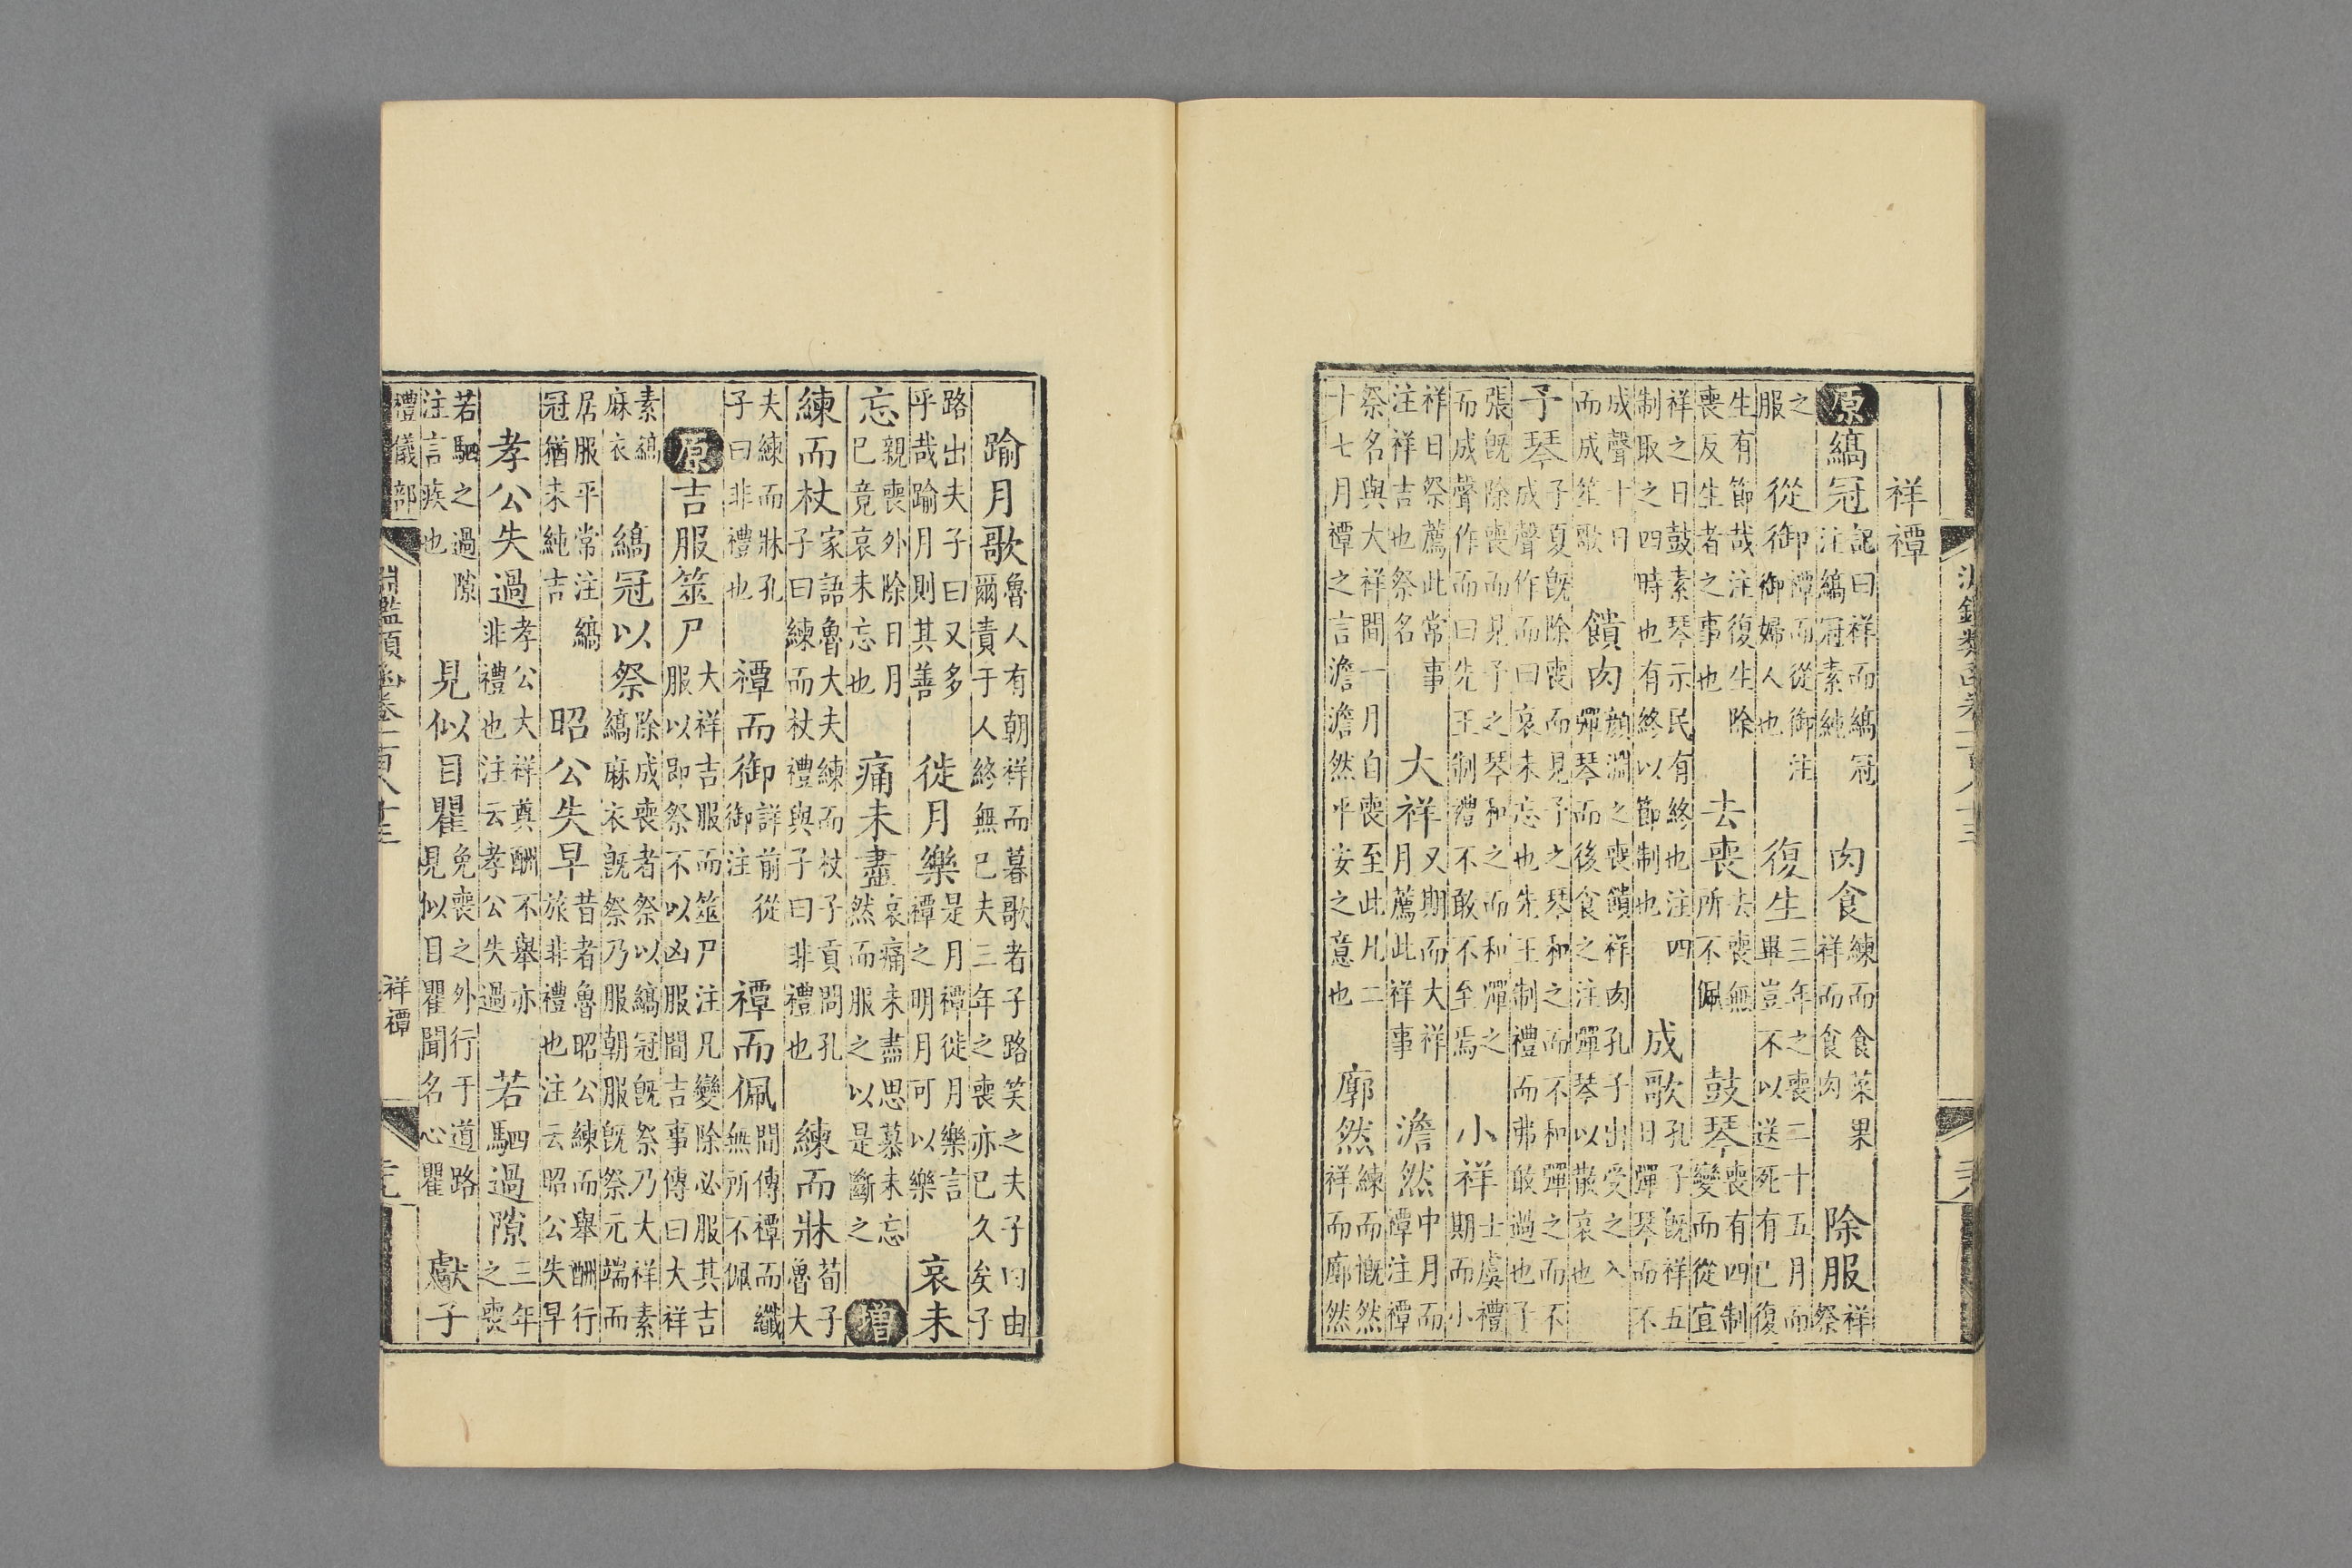 淵鑑類函卷一百八十三
祥禫
原縞冠記曰祥而縞冠注縞冠素純 肉食練而食菜果祥而食肉 除服祥祭
之服 從御禫而從御注御婦人也 復生三年之喪二十五月而畢豈不以送死有已復
生有節哉注復生除喪反生者之事也 去喪去喪無所不佩 鼓琴喪有四制變而從宜
祥之日鼓素琴示民有終也注四制取之四時也有終以節制也 成歌孔子既祥五日彈琴而不
成聲十日而成笙歌 饋肉顏淵之喪饋祥肉孔子出受之入彈琴而後食之注彈琴以散哀也
予琴子夏既除喪而見予之琴和之而不和彈之而不成聲作而曰哀未忘也先王制禮而弗敢過也子
張既除喪而見予之琴和之而和彈之而成聲作而曰先王制禮不敢不至焉 小祥士虞禮期而小
祥日祭薦此常事注祥吉也祭名 大祥又期而大祥月薦此祥事 澹然中月而禫注禫
祭名與大祥間一月自喪至此凡二十七月禫之言澹澹然平安之意也 廓然練而慨然祥而廓然
踰月歌魯人有朝祥而暮歌者子路笑之夫子曰由爾責于人終無已夫三年之喪亦已久矣子
路出夫子曰又多乎哉踰月則其善 徙月樂是月禫徙月樂言禫之明月可以樂 哀未
忘親喪外除日月已竟哀未忘也 痛未盡哀痛未盡思慕未忘然而服之以是斷之 增
練而杖家語魯大夫練而杖子貢問孔子曰練而杖禮與子曰非禮也 練而牀荀子魯大
夫練而牀孔子曰非禮也 禫而御詳前從御注 禫而佩間傳禫而纖無所不佩
原吉服筮尸大祥吉服而筮尸注凡變除必服其吉服以即祭不以凶服間吉事傳曰大祥
素縞麻衣 縞冠以祭除成喪者祭以縞冠既祭乃大祥素縞麻衣既祭乃服朝服既祭元端而
居服平常注縞冠猶未純吉 昭公失早昔者魯昭公練而舉酬行旅非禮也注云昭公失早
孝公失過孝公大祥奠酬不舉亦非禮也注云孝公失過 若駟過隙三年之喪
若駟之過隙注言疾也 見似目瞿免喪之外行于道路見似目瞿聞名心瞿 獻子
禮儀部 淵鑑類函卷一百八十三 祥禫